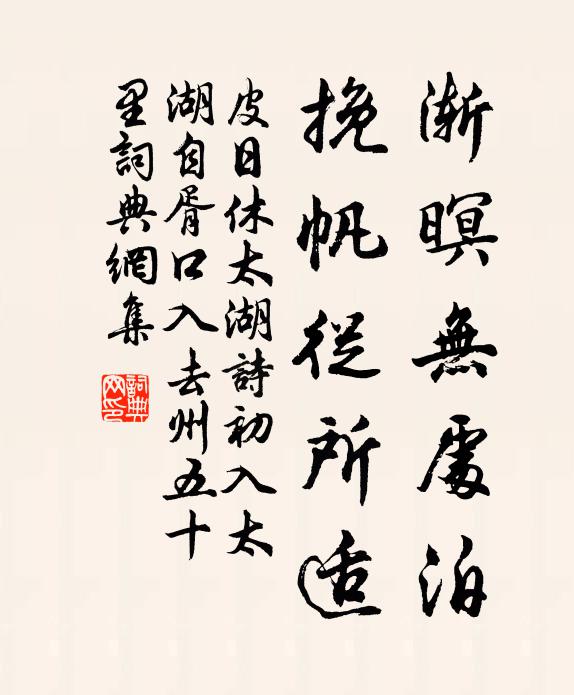 漸暝無處泊
挽帆從所適
皮日休太湖詩初入太
湖自胥口入去州五十
里詞典網集
詞典
网印